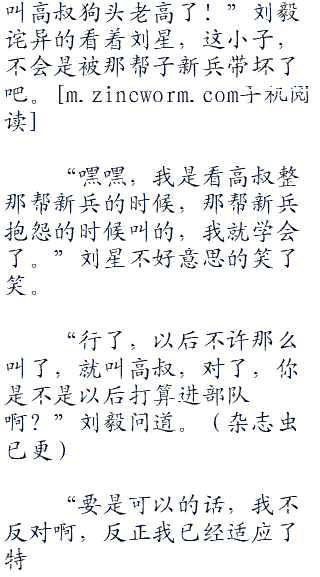 叫高叔狗头老高了！”刘毅
诧异的看着刘星，这小子，
不会是被那帮子新兵带坏了
吧。[m.zincworm.com手机阅
读]
“嘿嘿，我是看高叔整
那帮新兵的时候，那帮新兵
抱怨的时候叫的，我就学会
了。”刘星不好意思的笑了
笑。
“行了，以后不许那么
叫了，就叫高叔，对了，你
是不是以后打算进部队
啊？”刘毅问道。（杂志虫
已更）
“要是可以的话，我不
反对啊，反正我已经适应了
特